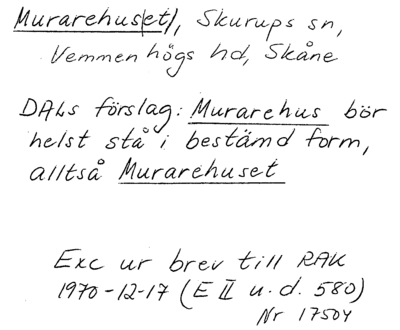 Murarehus(et), Skurups sn,
Vemmenhögs hd, Skåne
DALs förslag: Murarehus bör
helst stå i bestämd form,
alltså Murarehuset
Exc ur brev till RAK
1970-12-17 (E II u.d. 580)
Nr 17504